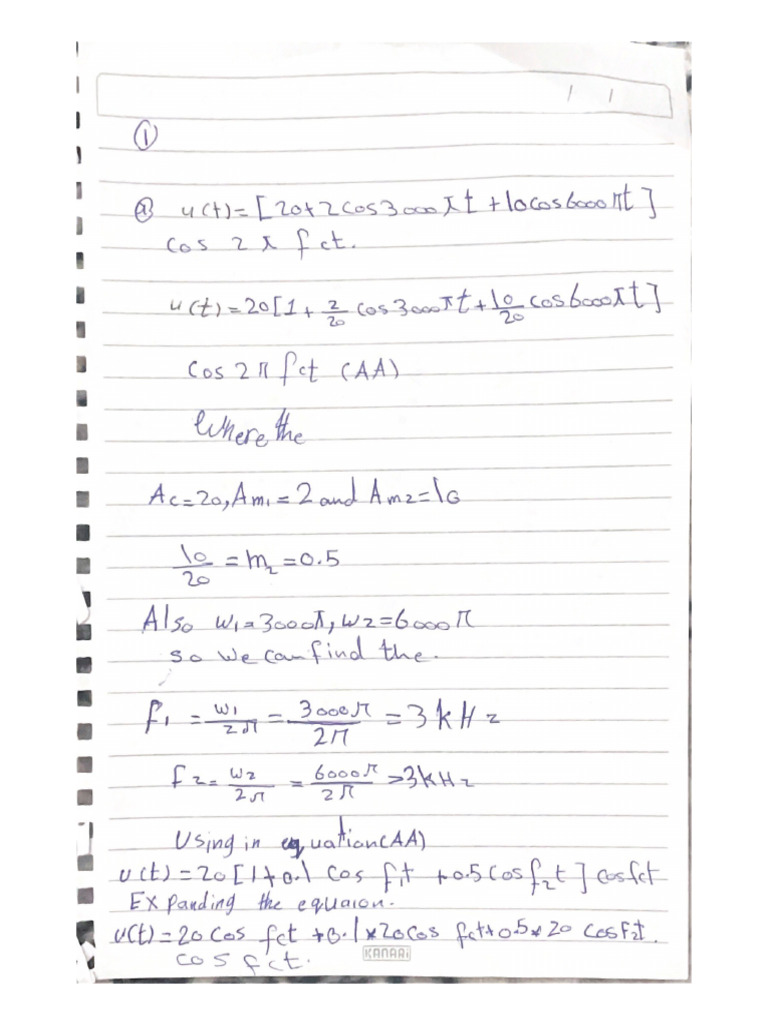 / /
①
ⓐ u(t)=[20+2cos3000πt+10cos6000πt]
cos 2π fct.
u(t)=20[1+ 2/20 cos3000πt+10/20 cos6000πt]
Cos 2π fct (AA)
Where the
Ac=20,Am1=2 and Am2=10
10/20 = m2 =0.5
Also w1=3000π,w2=6000π
so we can find the.
f1 = w1/2π = 3000π/2π = 3kHz
f2= w2/2π = 6000π/2π =>3kHz
Using in equation(AA)
u(t)=20[1+0.1 Cos f1t +0.5Cosf2t] cosfct
EXpanding the equaion.
u(t)=20Cos fct +0.1*20Cos fct+0.5*20 CosF2t.
cos fct.
KANARi